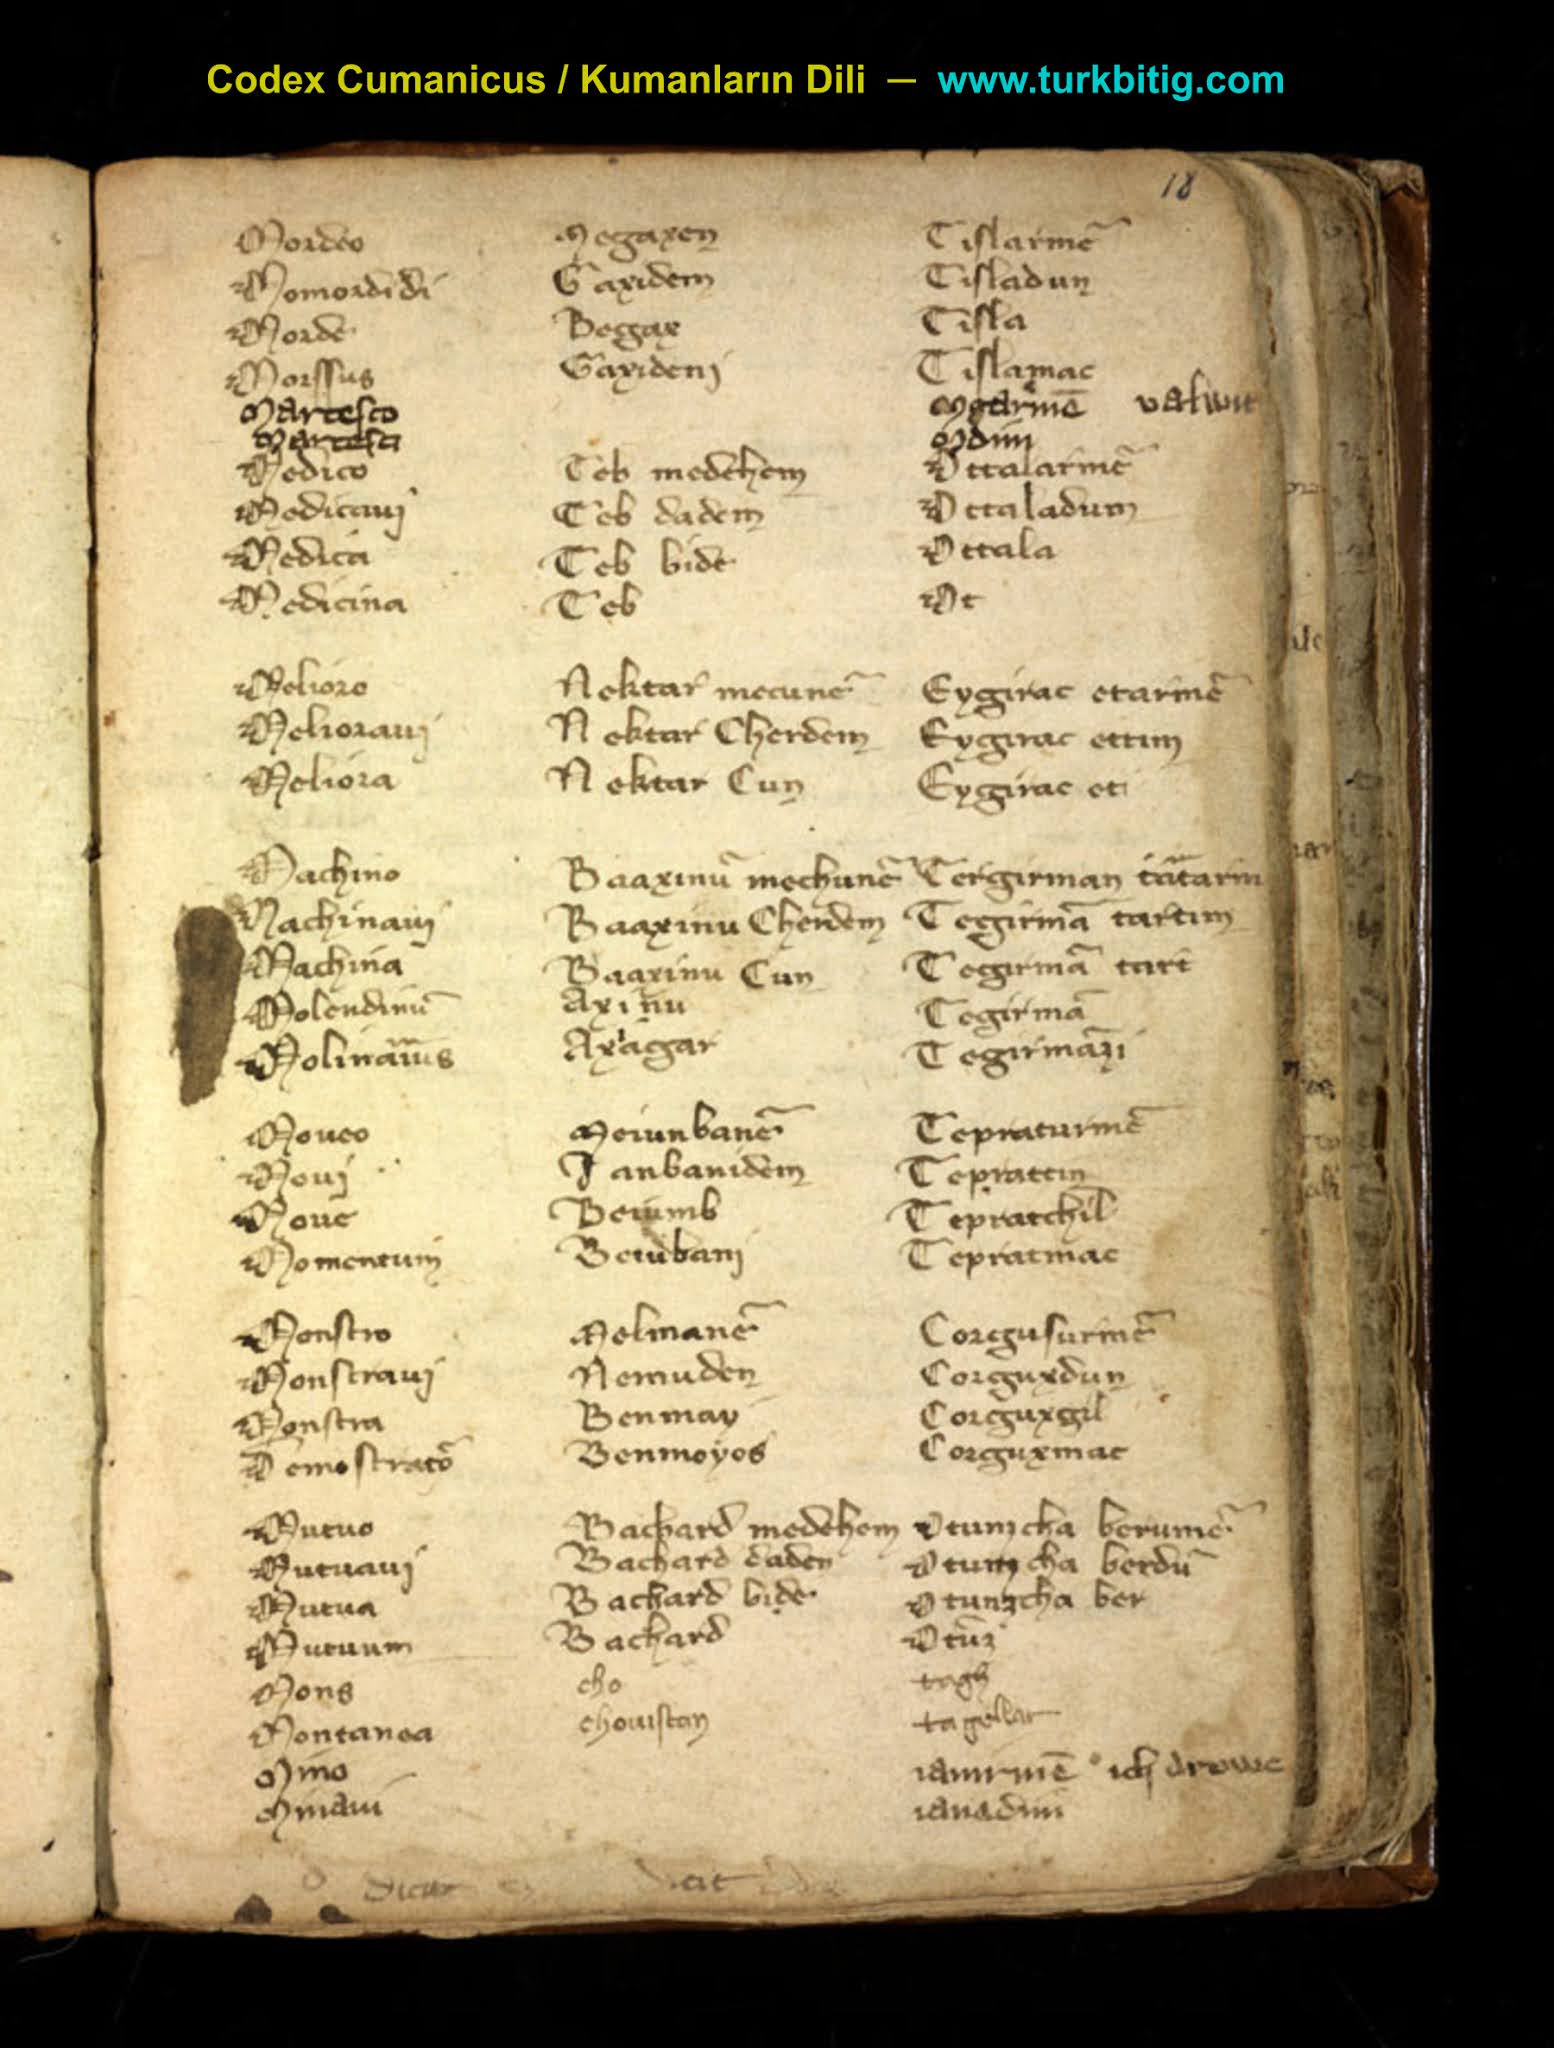 Codex Cumanicus / Kumanların Dili — www.turkbitig.com
18
Mordeo Megaxen Tislarmē
Momordidi Gaxidem Tisladun
Morde Begax Tisla
Morssus Gaxideni Tislamac
Martesco valwit
Martesci
Medico Teb medehem Ottalarmē
Medicaui Teb dadem Ottaladum
Medica Teb bide Ottala
Medicina Teb Ot
Melioro Nektar mecunē Eygirac etarmē
Melioraui Nektar Cherdem Eygirac ettim
Meliora Nektar Cun Eygirac et
Machino Baaxinū mechunē Tergirman tātarin
Machinaui Baaxinu Cherdem Tegirmā tartim
Machina Baaxinu Cun Tegirmā tart
Molendinū Axinu Tegirmā
Molinarius Axiagar Tegirmāzi
Moueo Meiunbanē Tepraturmē
Moui Ianbanidem Teprattin
Moue Beiumb Tepratchil
Momentum Beiūbani Tepratmac
Monstro Melmanē Corgusurmē
Monstraui Nemuden Corguxdun
Monstra Benmay Corguxgil
Demostratō Benmoyes Corguxmac
Mutuo Bachard medehem Otunzcha berumē
Mutuaui Bachard daden Otunzcha berdū
Mutua Bachard bide Otunzcha ber
Mutuum Bachard Otūz
Mons cho tagh
Montanea chouistan
Mino ianirmē ich drowe
Minaui ianadim